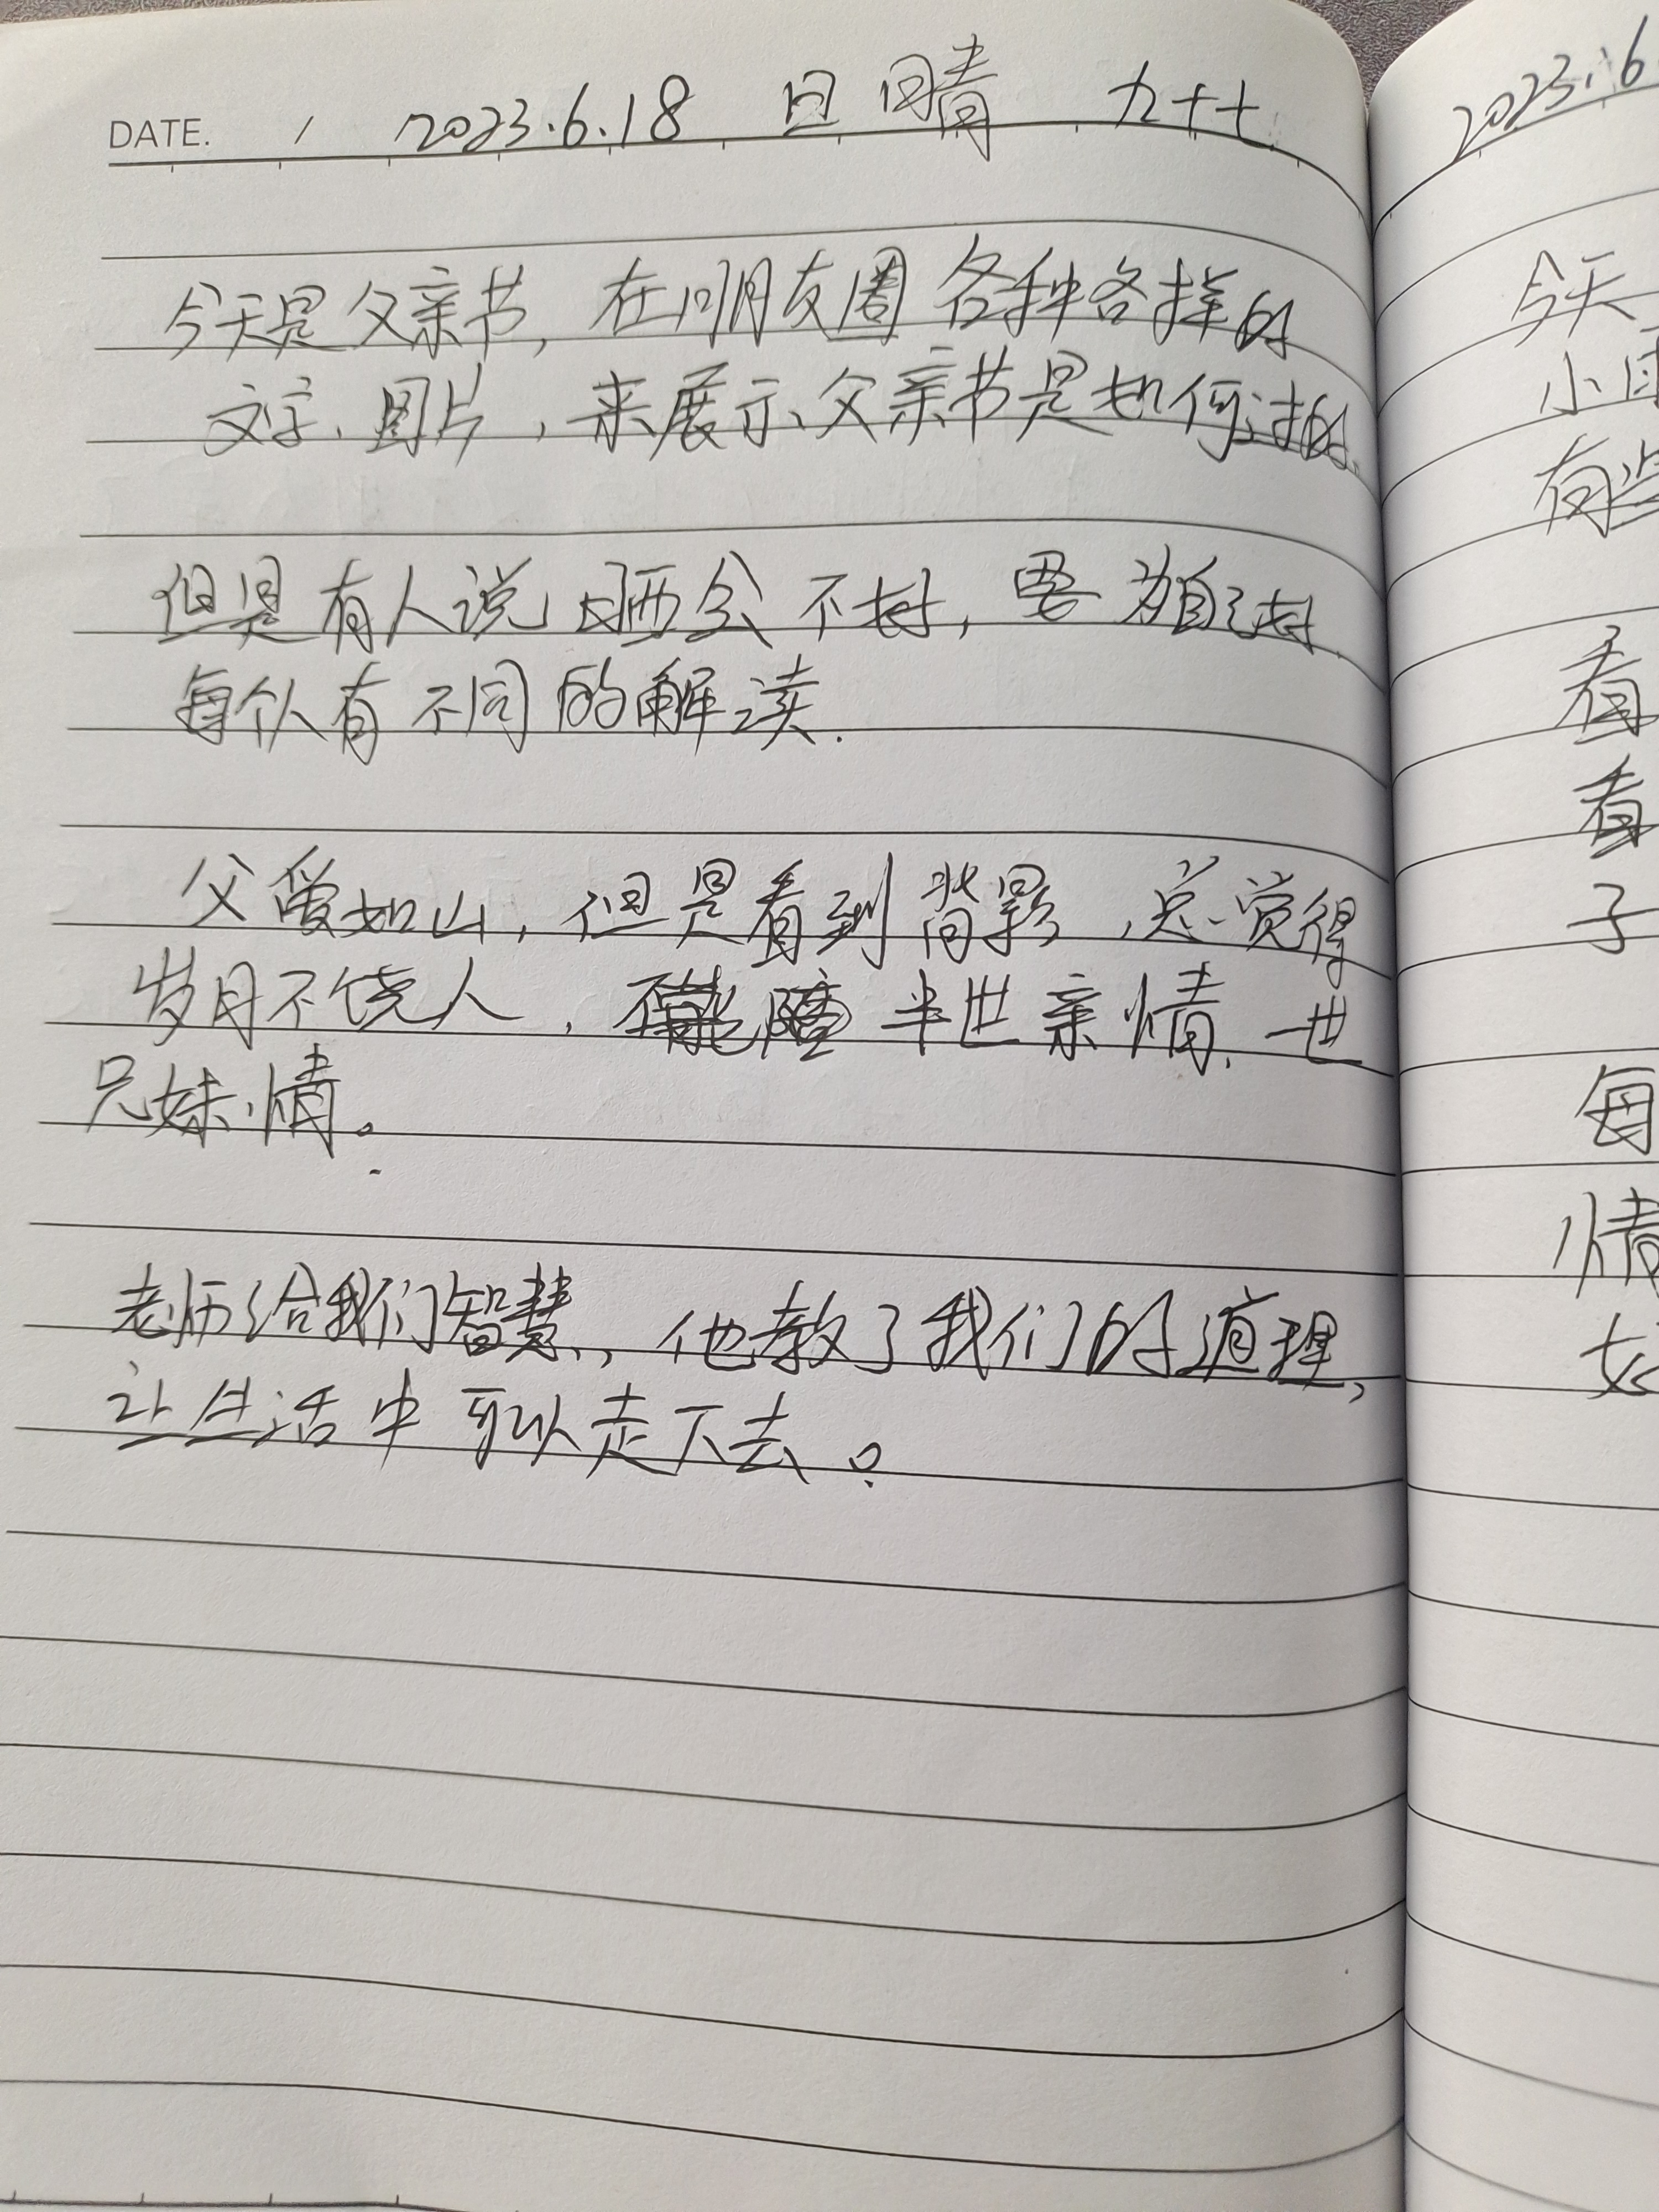 DATE. / 2023.6.18 日 晴 九十七
今天是父亲节，在朋友圈各种各样的
文字、图片，来展示父亲节是如何过的。
但是有人说晒会不好，要为自己好
每个人有不同的解读.
父爱如山，但是看到背影，总觉得
岁月不饶人，半世亲情，一世
兄妹情。
老师给我们智慧，他教了我们的道理，
让生活中可以走下去。
2023.6
今天
小雨
有些
看
看
子
每
情